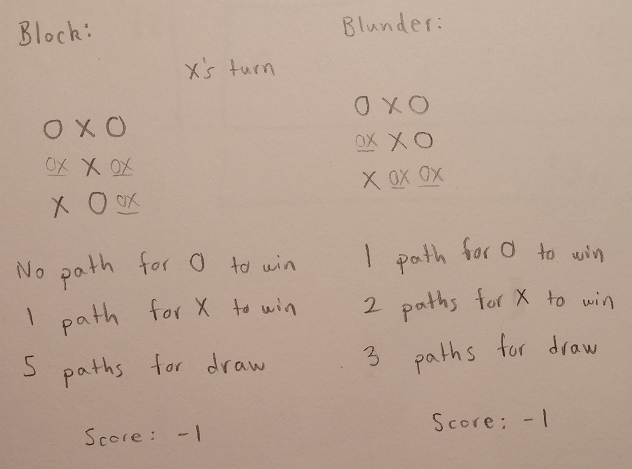 Block:
X's turn
O X O
OX X OX
X O OX
No path for O to win
1 path for X to win
5 paths for draw
Score: -1
Blunder:
O X O
OX X O
X OX OX
1 path for O to win
2 paths for X to win
3 paths for draw
Score: -1